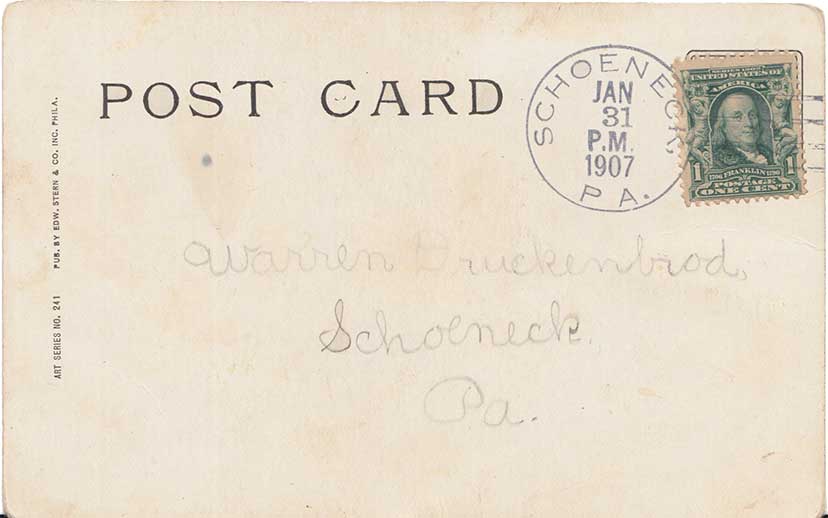 POST CARD
SCHOENECK,
JAN
31
P.M.
1907
PA.
SERIES 1902
UNITED STATES OF
AMERICA
1706 FRANKLIN 1790
1 1
POSTAGE
ONE CENT
Warren Druckenbrod,
Schoeneck
Pa.
ART SERIES NO. 241 PUB. BY EDW. STERN & CO. INC. PHILA.